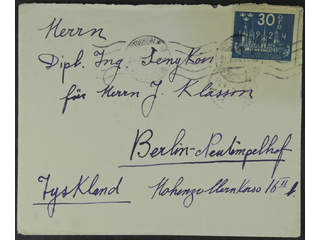 Herrn
30
Dipl. Ing. Jengkön
für Herrn J. Klasson
Berlin-Neutempelhof
Tyskland Hohenzollernkorso 16 II